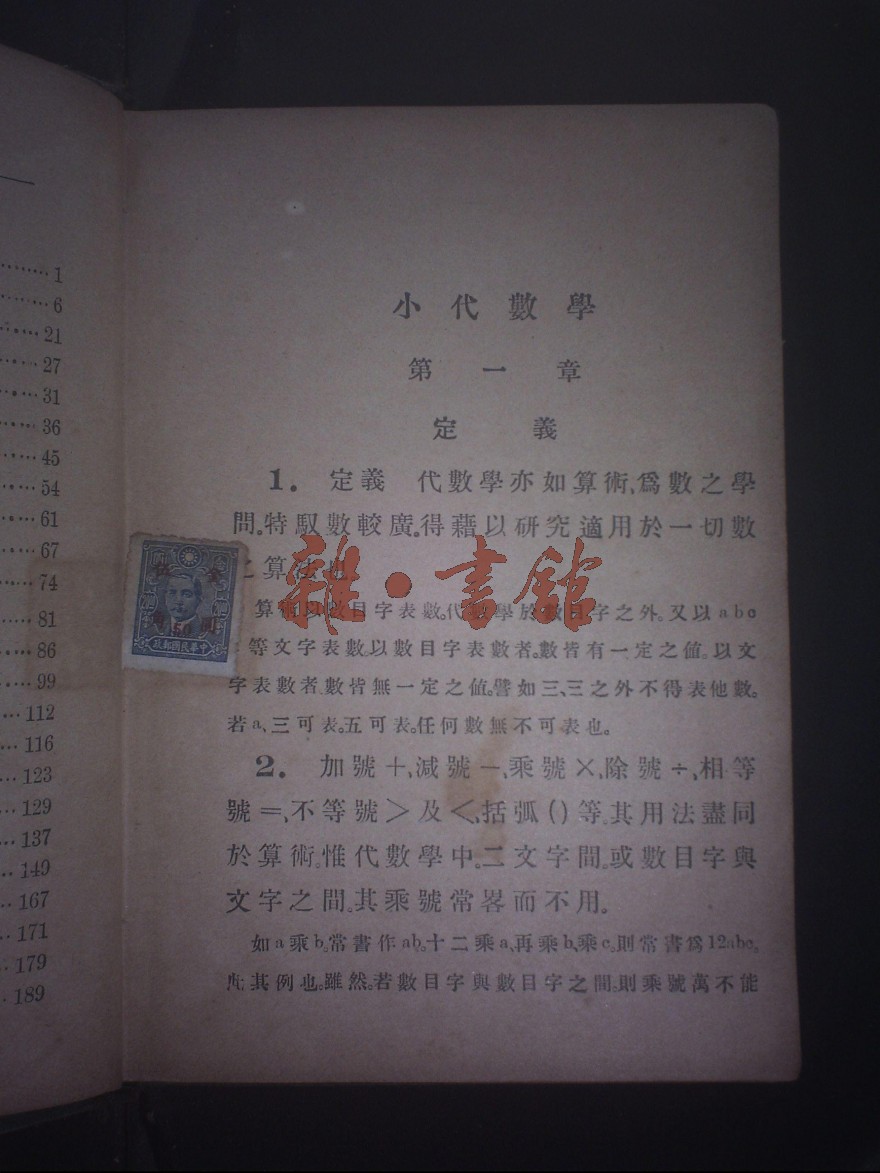 1
6
21
27
31
36
45
54
61
67
74
81
86
99
112
116
123
129
137
149
167
171
179
189
小代數學
第一章
定義
1. 定義 代數學亦如算術、爲數之學
問。特馭數較廣。得藉以研究適用於一切數
之算法也
算術以數目字表數。代數學於數目字之外。又以abc
等文字表數。以數目字表數者。數皆有一定之値。以文
字表數者。數皆無一定之値。譬如三、三之外不得表他數。
若a、三可表。五可表。任何數無不可表也。
2. 加號+、減號−、乘號×、除號÷、相等
號=、不等號>及<、括弧()等。其用法盡同
於算術。惟代數學中。二文字間。或數目字與
文字之間。其乘號常畧而不用。
如a乘b。常書作ab。十二乘a、再乘b、乘c。則常書爲12abc。
此其例也。雖然。若數目字與數目字之間。則乘號萬不能
雜·書館
伍 壹
角 50 圓
政郵國民華中